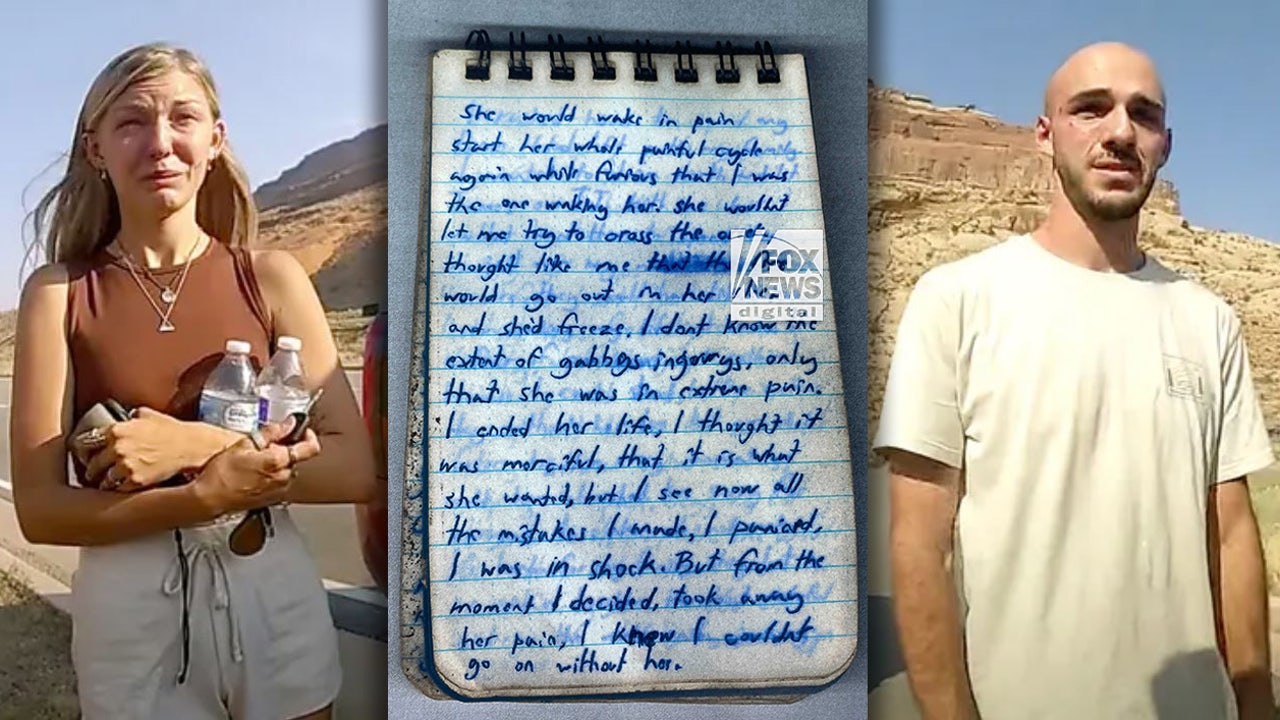 She would wake in pain
start her whole painful cycle
again while furious that I was
the one waking her. she wouldnt
let me try to cross the
thought like me that the
would go out in her
and she'd freeze. I dont know the
extent of gabbys injurys, only
that she was in extreme pain.
I ended her life, I thought it
was merciful, that it is what
she wanted, but I see now all
the mistakes I made, I panicked,
I was in shock. But from the
moment I decided, took away
her pain, I knew I couldnt
go on without her.
FOX
NEWS
digital